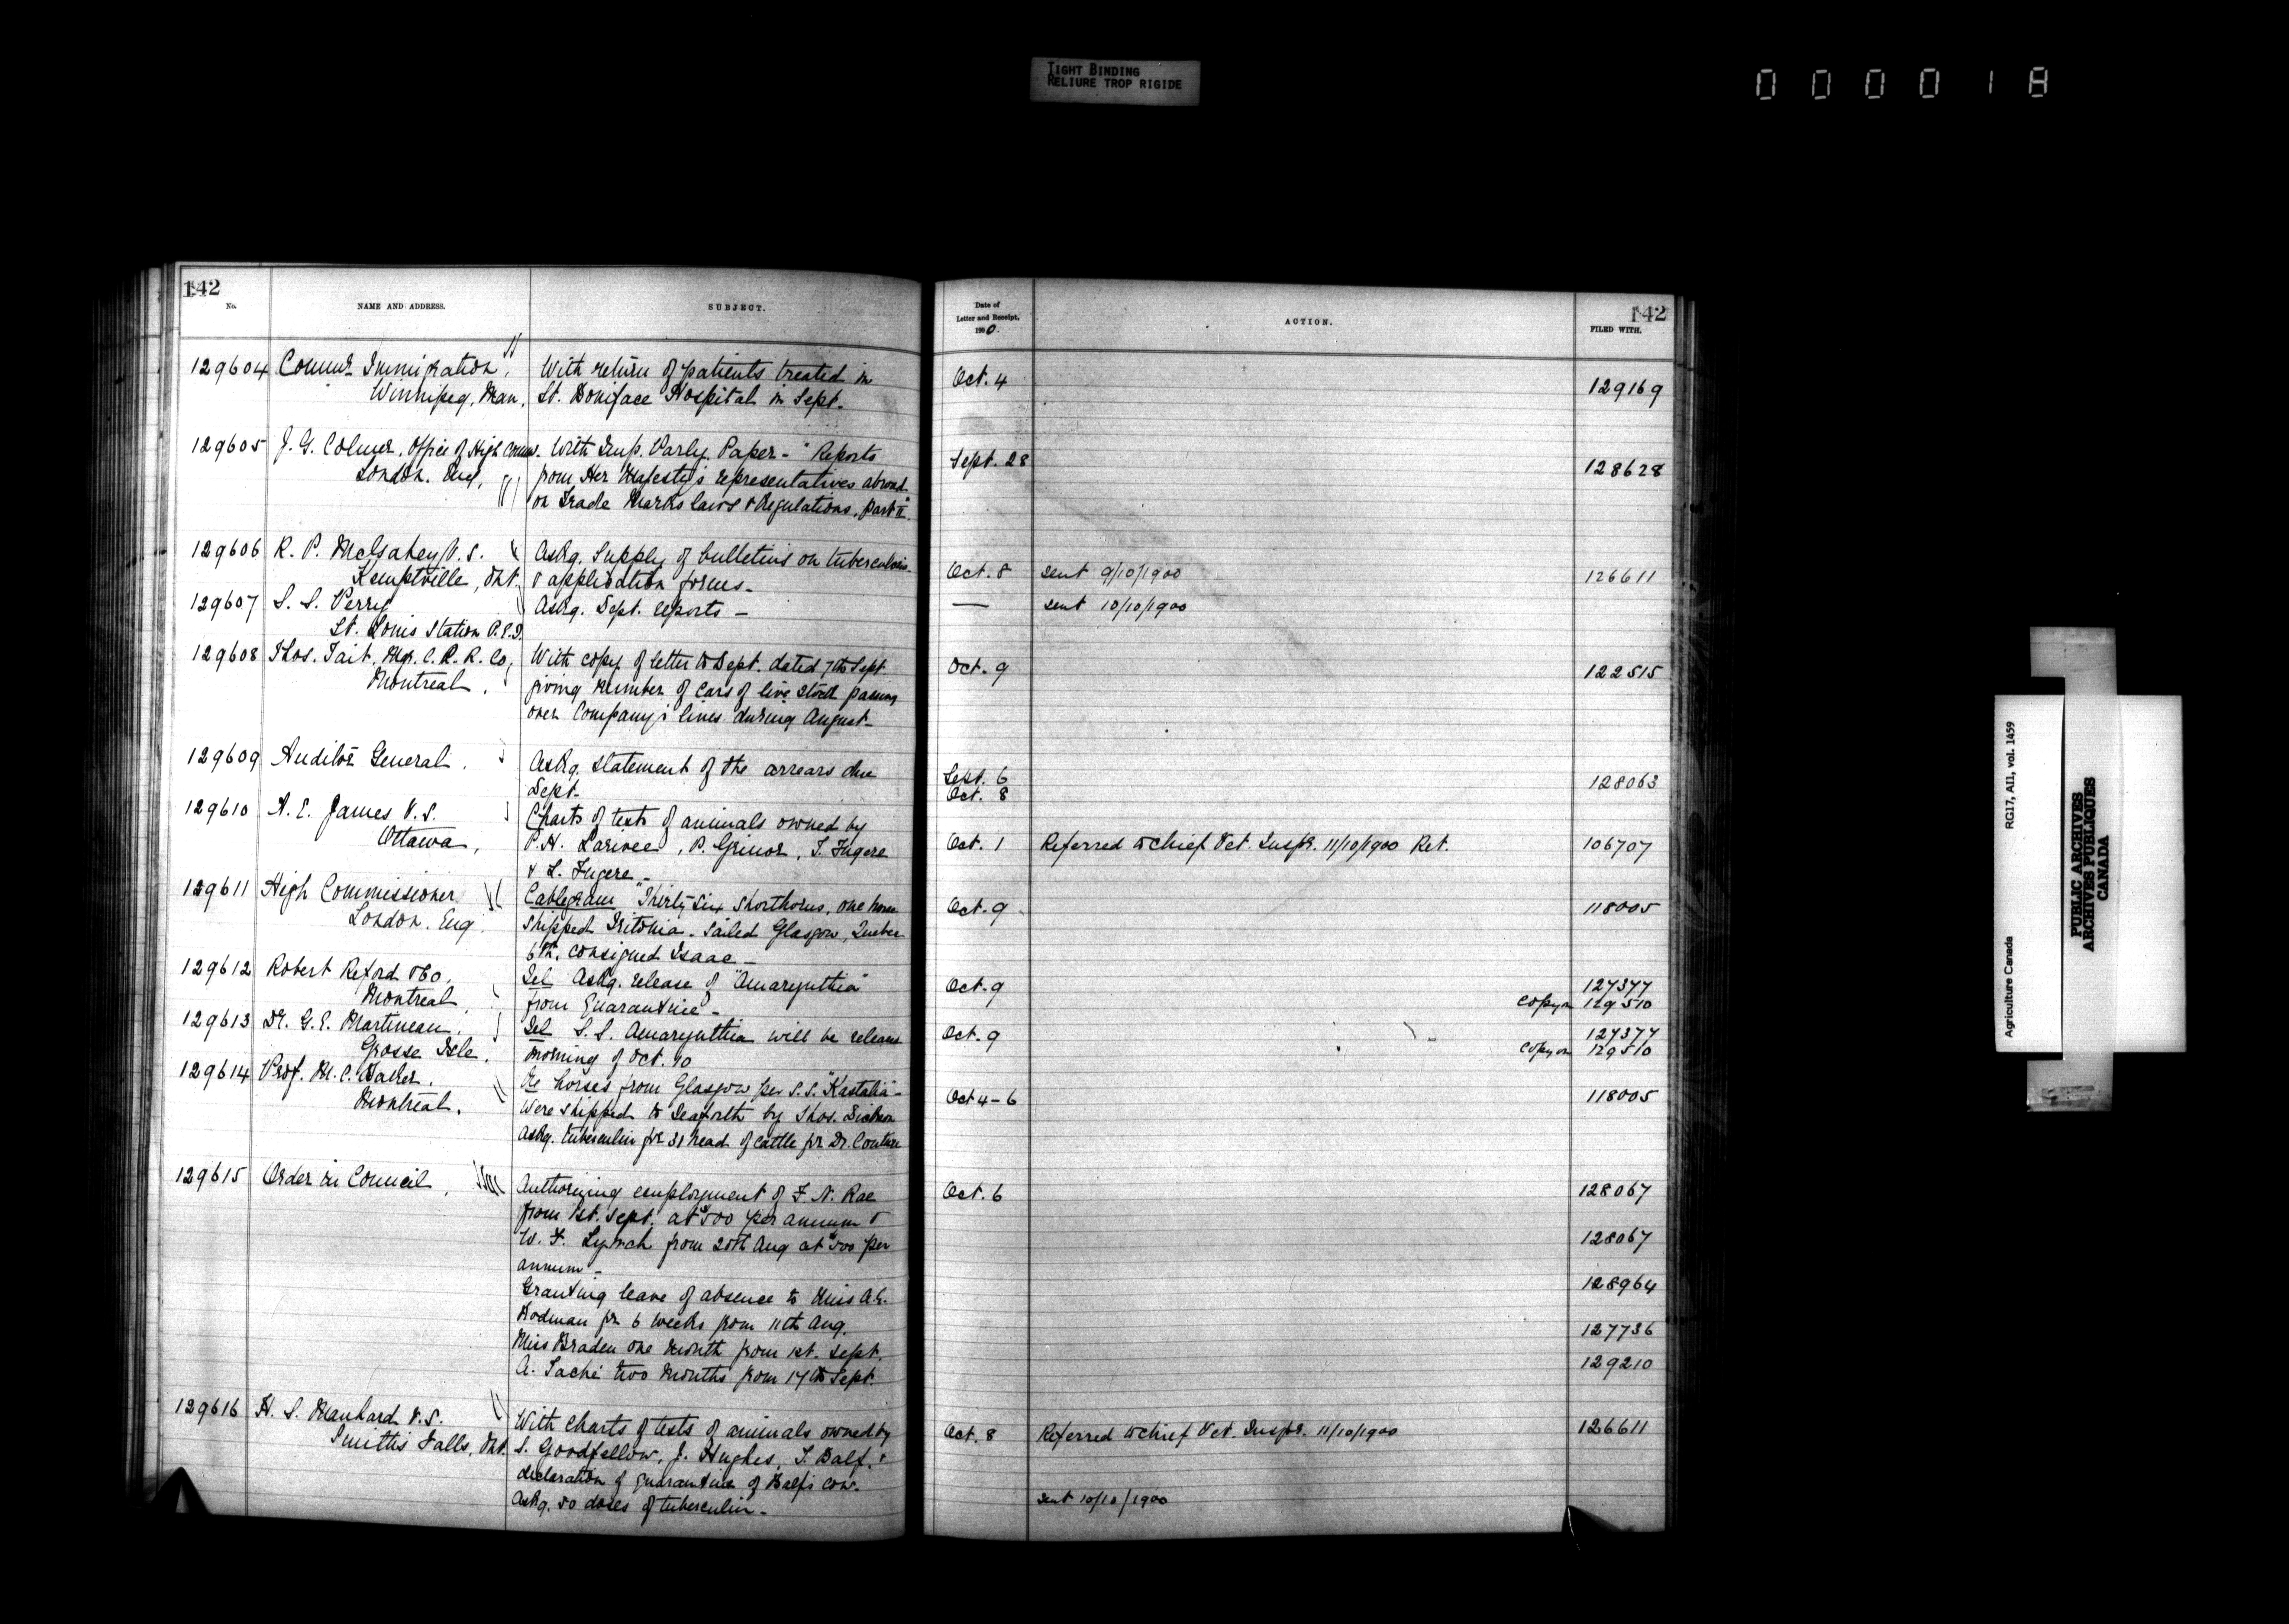 TIGHT BINDING
RELIURE TROP RIGIDE
000018
142
No.
NAME AND ADDRESS.
SUBJECT.
Date of
Letter and Receipt,
1900.
ACTION.
142
FILED WITH.
129604 Commr Immigration, With return of patients treated in Oct. 4 129169
Winnipeg, Man, St. Boniface Hospital in Sept.
129605 J. G. Colmer, Office of High Commr. With Imp. Parly. Paper - "Reports Sept. 28 128628
London. Eng, from Her Majesty's representatives abroad
on Trade Marks laws & Regulations, Part II"
129606 R. P. McGahey V.S. Askg. supply of bulletins on tuberculosis
Kemptville, Ont. & application forms - Oct. 8 sent 9/10/1900 126611
129607 S. S. Perry Askg. Dept. reports - — sent 10/10/1900
St. Louis Station P.E.I.
129608 Thos. Tait, Mgr. C. P. R. Co, With copy of letter to Dept. dated 7th Sept. Oct. 9 122515
Montreal. giving number of cars of live stock passing
over Company's lines during August -
129609 Auditor General. Askg. statement of the arrears due Sept. 6 128063
Dept. Oct. 8
129610 A. E. James V.S. Charts of tests of animals owned by
Ottawa, P. H. Larivee, P. Grinor, T. Fugere Oct. 1 Referred to Chief Vet. Inspr. 11/10/1900 Ret. 106707
& L. Fugere -
129611 High Commissioner Cablegram "Thirty-six shorthorns, one horse Oct. 9 118005
London. Eng. shipped Tritonia. Sailed Glasgow, Quebec
6th, consigned Isaac -
129612 Robert Reford & Co. Tel Askg. release of "Amarynthia" Oct. 9 127377
Montreal from Quarantine - Copy on 129510
129613 Dr. G. E. Martineau, Tel S.S. Amarynthia will be released Oct. 9 127377
Grosse Isle. morning of Oct. 10 Copy on 129510
129614 Prof. M. C. Baker, Re horses from Glasgow per S.S. "Kastalia" - Oct 4-6 118005
Montreal. Were shipped to Seaforth by Thos. Dickson
Askg. tuberculin for 31 head of cattle for Dr. Couture
129615 Order in Council, Authorizing employment of F. N. Rae Oct. 6 128067
from 1st. Sept. at $500 per annum &
W. F. Lynch from 20th Aug at $500 per 128067
annum -
Granting leave of absence to Miss A. G. 128964
Rodman for 6 weeks from 11th Aug.
Miss Braden one month from 1st. Sept. 127736
A. Taché two months from 17th Sept. 129210
129616 H. S. Manhard V.S. With charts of tests of animals owned by Oct. 8 Referred to Chief Vet. Inspr. 11/10/1900 126611
Smiths Falls, Ont. S. Goodfellow, J. Hughes, T. Balf. &
declaration of quarantine of Balf's cow.
Askg. 50 doses of tuberculin - sent 10/10/1900
Agriculture Canada RG17, AII, vol. 1459
PUBLIC ARCHIVES
ARCHIVES PUBLIQUES
CANADA